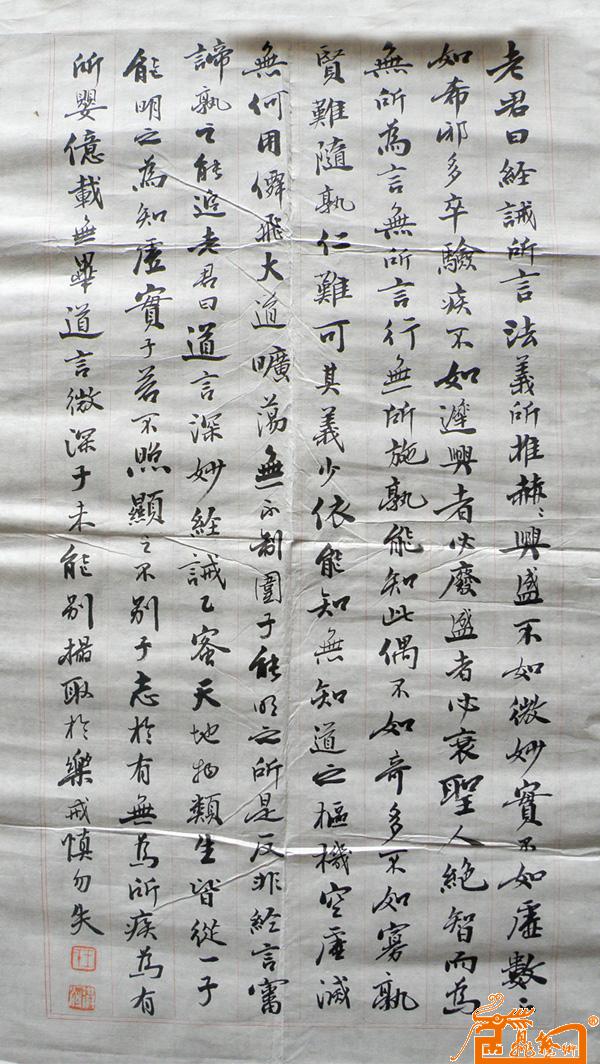 老君曰經誡所言法義所推赫〻興盛不如微妙實不如虛數不
如希邪多卒驗疾不如遲興者必廢盛者必衰聖人絶智而為
無所為言無所言行無所施孰能知此偶不如奇多不如寡孰
賢難隨孰仁難可其義少依能知無知道之樞機空虛滅
無何用僻飛大道曠蕩無不制圍子能明之所是反非經言審
諦孰之能追老君曰道言深妙經誡乙蜜天地物類生皆從一子
能明之為知虛實子若不照顯之不別子志於有無為所疾為有
所嬰億載無畢道言微深子未能別撮取於樂戒慎勿失